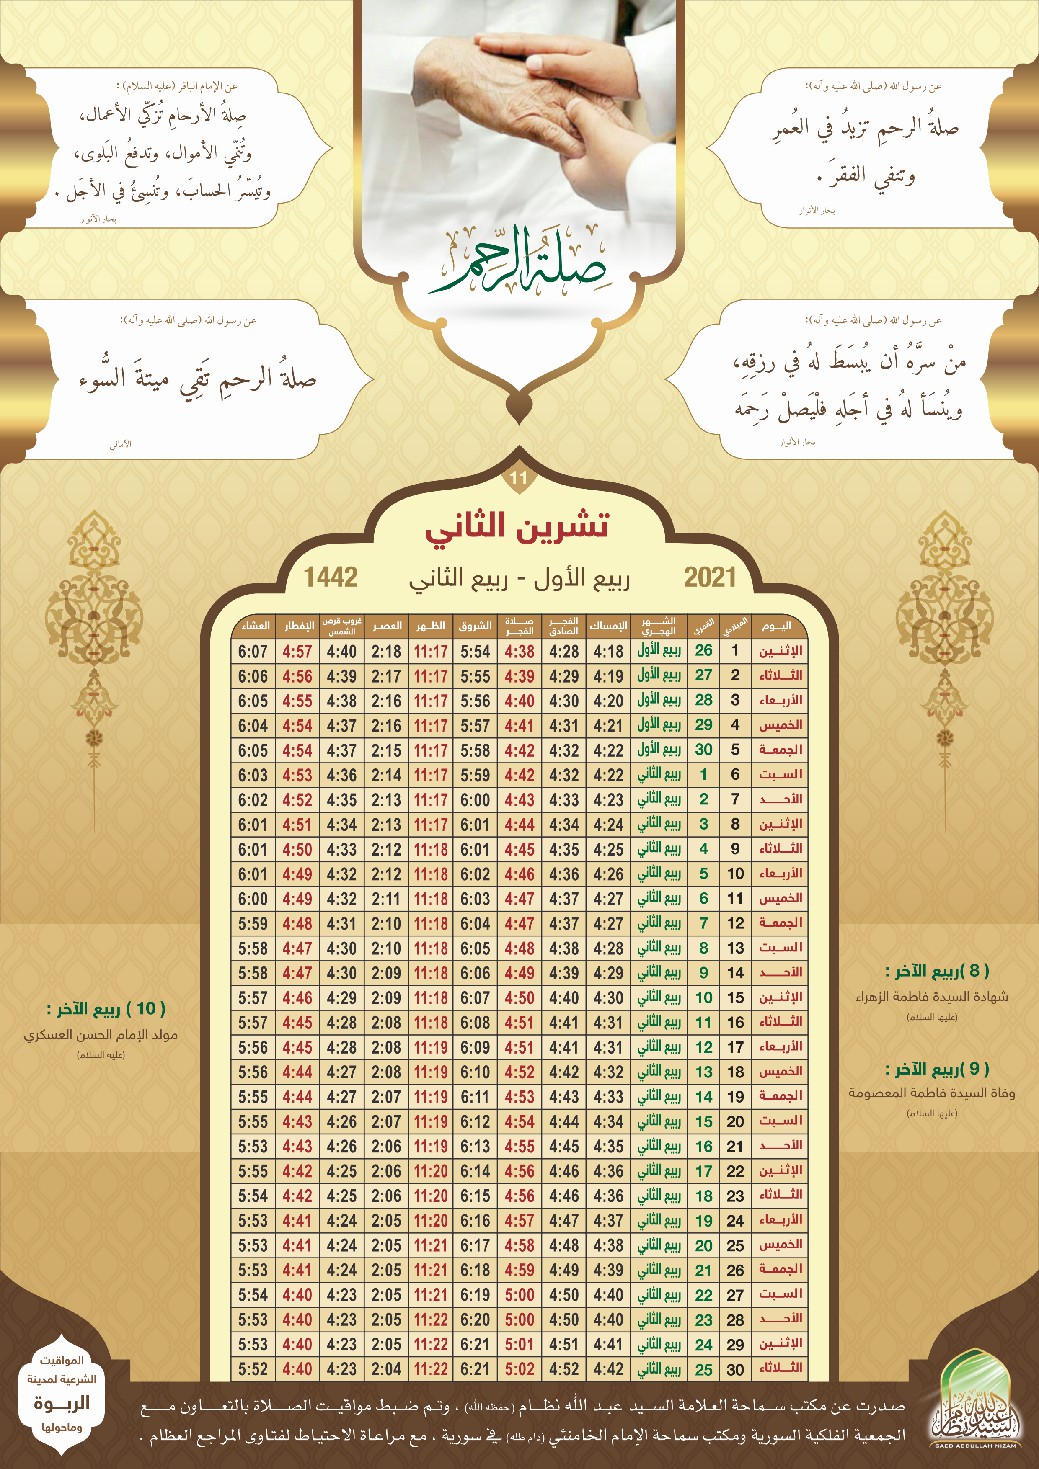 عن رسول الله (صلى الله عليه وآله):
صلةُ الرحمِ تزيدُ في العُمرِ
وتنفي الفقرَ .
بحار الأنوار
عن الإمام الباقر (عليه السلام) :
صِلةُ الأرحامِ تُزكّي الأعمال،
وتُنمّي الأموال، وتدفعُ البَلوى،
وتُيسّرُ الحسابَ، وتُنسِئُ في الأجَل .
بحار الأنوار
صلة الرحم
عن رسول الله (صلى الله عليه وآله):
منْ سرَّهُ أن يُبسَطَ لهُ في رزقِهِ،
ويُنسَأ لهُ في أجَلهِ فلْيَصلْ رَحِمَه
بحار الأنوار
عن رسول الله (صلى الله عليه وآله):
صلةُ الرحمِ تَقِي ميتةَ السُّوء
الأمالي
11
تشرين الثاني
2021 ربيع الأول - ربيع الثاني 1442
اليوم الميلادي القمري الشهر الهجري الإمساك الفجر الصادق صلاة الفجر الشروق الظهر العصر غروب قرص الشمس الإفطار العشاء
الإثنين 1 26 ربيع الأول 4:18 4:28 4:38 5:54 11:17 2:18 4:40 4:57 6:07
الثلاثاء 2 27 ربيع الأول 4:19 4:29 4:39 5:55 11:17 2:17 4:39 4:56 6:06
الأربعاء 3 28 ربيع الأول 4:20 4:30 4:40 5:56 11:17 2:16 4:38 4:55 6:05
الخميس 4 29 ربيع الأول 4:21 4:31 4:41 5:57 11:17 2:16 4:37 4:54 6:04
الجمعة 5 30 ربيع الأول 4:22 4:32 4:42 5:58 11:17 2:15 4:37 4:54 6:05
السبت 6 1 ربيع الثاني 4:22 4:32 4:42 5:59 11:17 2:14 4:36 4:53 6:03
الأحد 7 2 ربيع الثاني 4:23 4:33 4:43 6:00 11:17 2:13 4:35 4:52 6:02
الإثنين 8 3 ربيع الثاني 4:24 4:34 4:44 6:01 11:17 2:13 4:34 4:51 6:01
الثلاثاء 9 4 ربيع الثاني 4:25 4:35 4:45 6:01 11:18 2:12 4:33 4:50 6:01
الأربعاء 10 5 ربيع الثاني 4:26 4:36 4:46 6:02 11:18 2:12 4:32 4:49 6:01
الخميس 11 6 ربيع الثاني 4:27 4:37 4:47 6:03 11:18 2:11 4:32 4:49 6:00
الجمعة 12 7 ربيع الثاني 4:27 4:37 4:47 6:04 11:18 2:10 4:31 4:48 5:59
السبت 13 8 ربيع الثاني 4:28 4:38 4:48 6:05 11:18 2:10 4:30 4:47 5:58
الأحد 14 9 ربيع الثاني 4:29 4:39 4:49 6:06 11:18 2:09 4:30 4:47 5:58
الإثنين 15 10 ربيع الثاني 4:30 4:40 4:50 6:07 11:18 2:09 4:29 4:46 5:57
الثلاثاء 16 11 ربيع الثاني 4:31 4:41 4:51 6:08 11:18 2:08 4:28 4:45 5:57
الأربعاء 17 12 ربيع الثاني 4:31 4:41 4:51 6:09 11:19 2:08 4:28 4:45 5:56
الخميس 18 13 ربيع الثاني 4:32 4:42 4:52 6:10 11:19 2:08 4:27 4:44 5:56
الجمعة 19 14 ربيع الثاني 4:33 4:43 4:53 6:11 11:19 2:07 4:27 4:44 5:55
السبت 20 15 ربيع الثاني 4:34 4:44 4:54 6:12 11:19 2:07 4:26 4:43 5:55
الأحد 21 16 ربيع الثاني 4:35 4:45 4:55 6:13 11:19 2:06 4:26 4:43 5:53
الإثنين 22 17 ربيع الثاني 4:36 4:46 4:56 6:14 11:20 2:06 4:25 4:42 5:55
الثلاثاء 23 18 ربيع الثاني 4:36 4:46 4:56 6:15 11:20 2:06 4:25 4:42 5:54
الأربعاء 24 19 ربيع الثاني 4:37 4:47 4:57 6:16 11:20 2:05 4:24 4:41 5:53
الخميس 25 20 ربيع الثاني 4:38 4:48 4:58 6:17 11:21 2:05 4:24 4:41 5:53
الجمعة 26 21 ربيع الثاني 4:39 4:49 4:59 6:18 11:21 2:05 4:24 4:41 5:53
السبت 27 22 ربيع الثاني 4:40 4:50 5:00 6:19 11:21 2:05 4:23 4:40 5:54
الأحد 28 23 ربيع الثاني 4:40 4:50 5:00 6:20 11:22 2:05 4:23 4:40 5:53
الإثنين 29 24 ربيع الثاني 4:41 4:51 5:01 6:21 11:22 2:05 4:23 4:40 5:53
الثلاثاء 30 25 ربيع الثاني 4:42 4:52 5:02 6:21 11:22 2:04 4:23 4:40 5:52
( 8 )ربيع الآخر :
شهادة السيدة فاطمة الزهراء
(عليها السلام)
( 9 )ربيع الآخر :
وفاة السيدة فاطمة المعصومة
(عليها السلام)
( 10 ) ربيع الآخر :
مولد الإمام الحسن العسكري
(عليه السلام)
صدرت عن مكتب سماحة العلامة السيد عبد الله نظام (حفظه الله) ، وتم ضبط مواقيت الصلاة بالتعاون مع
الجمعية الفلكية السورية ومكتب سماحة الإمام الخامنئي (دام ظله) في سورية ، مع مراعاة الاحتياط لفتاوى المراجع العظام .
المواقيت
الشرعية لمدينة
الربوة
وماحولها
SAED ABDULLAH NIZAM